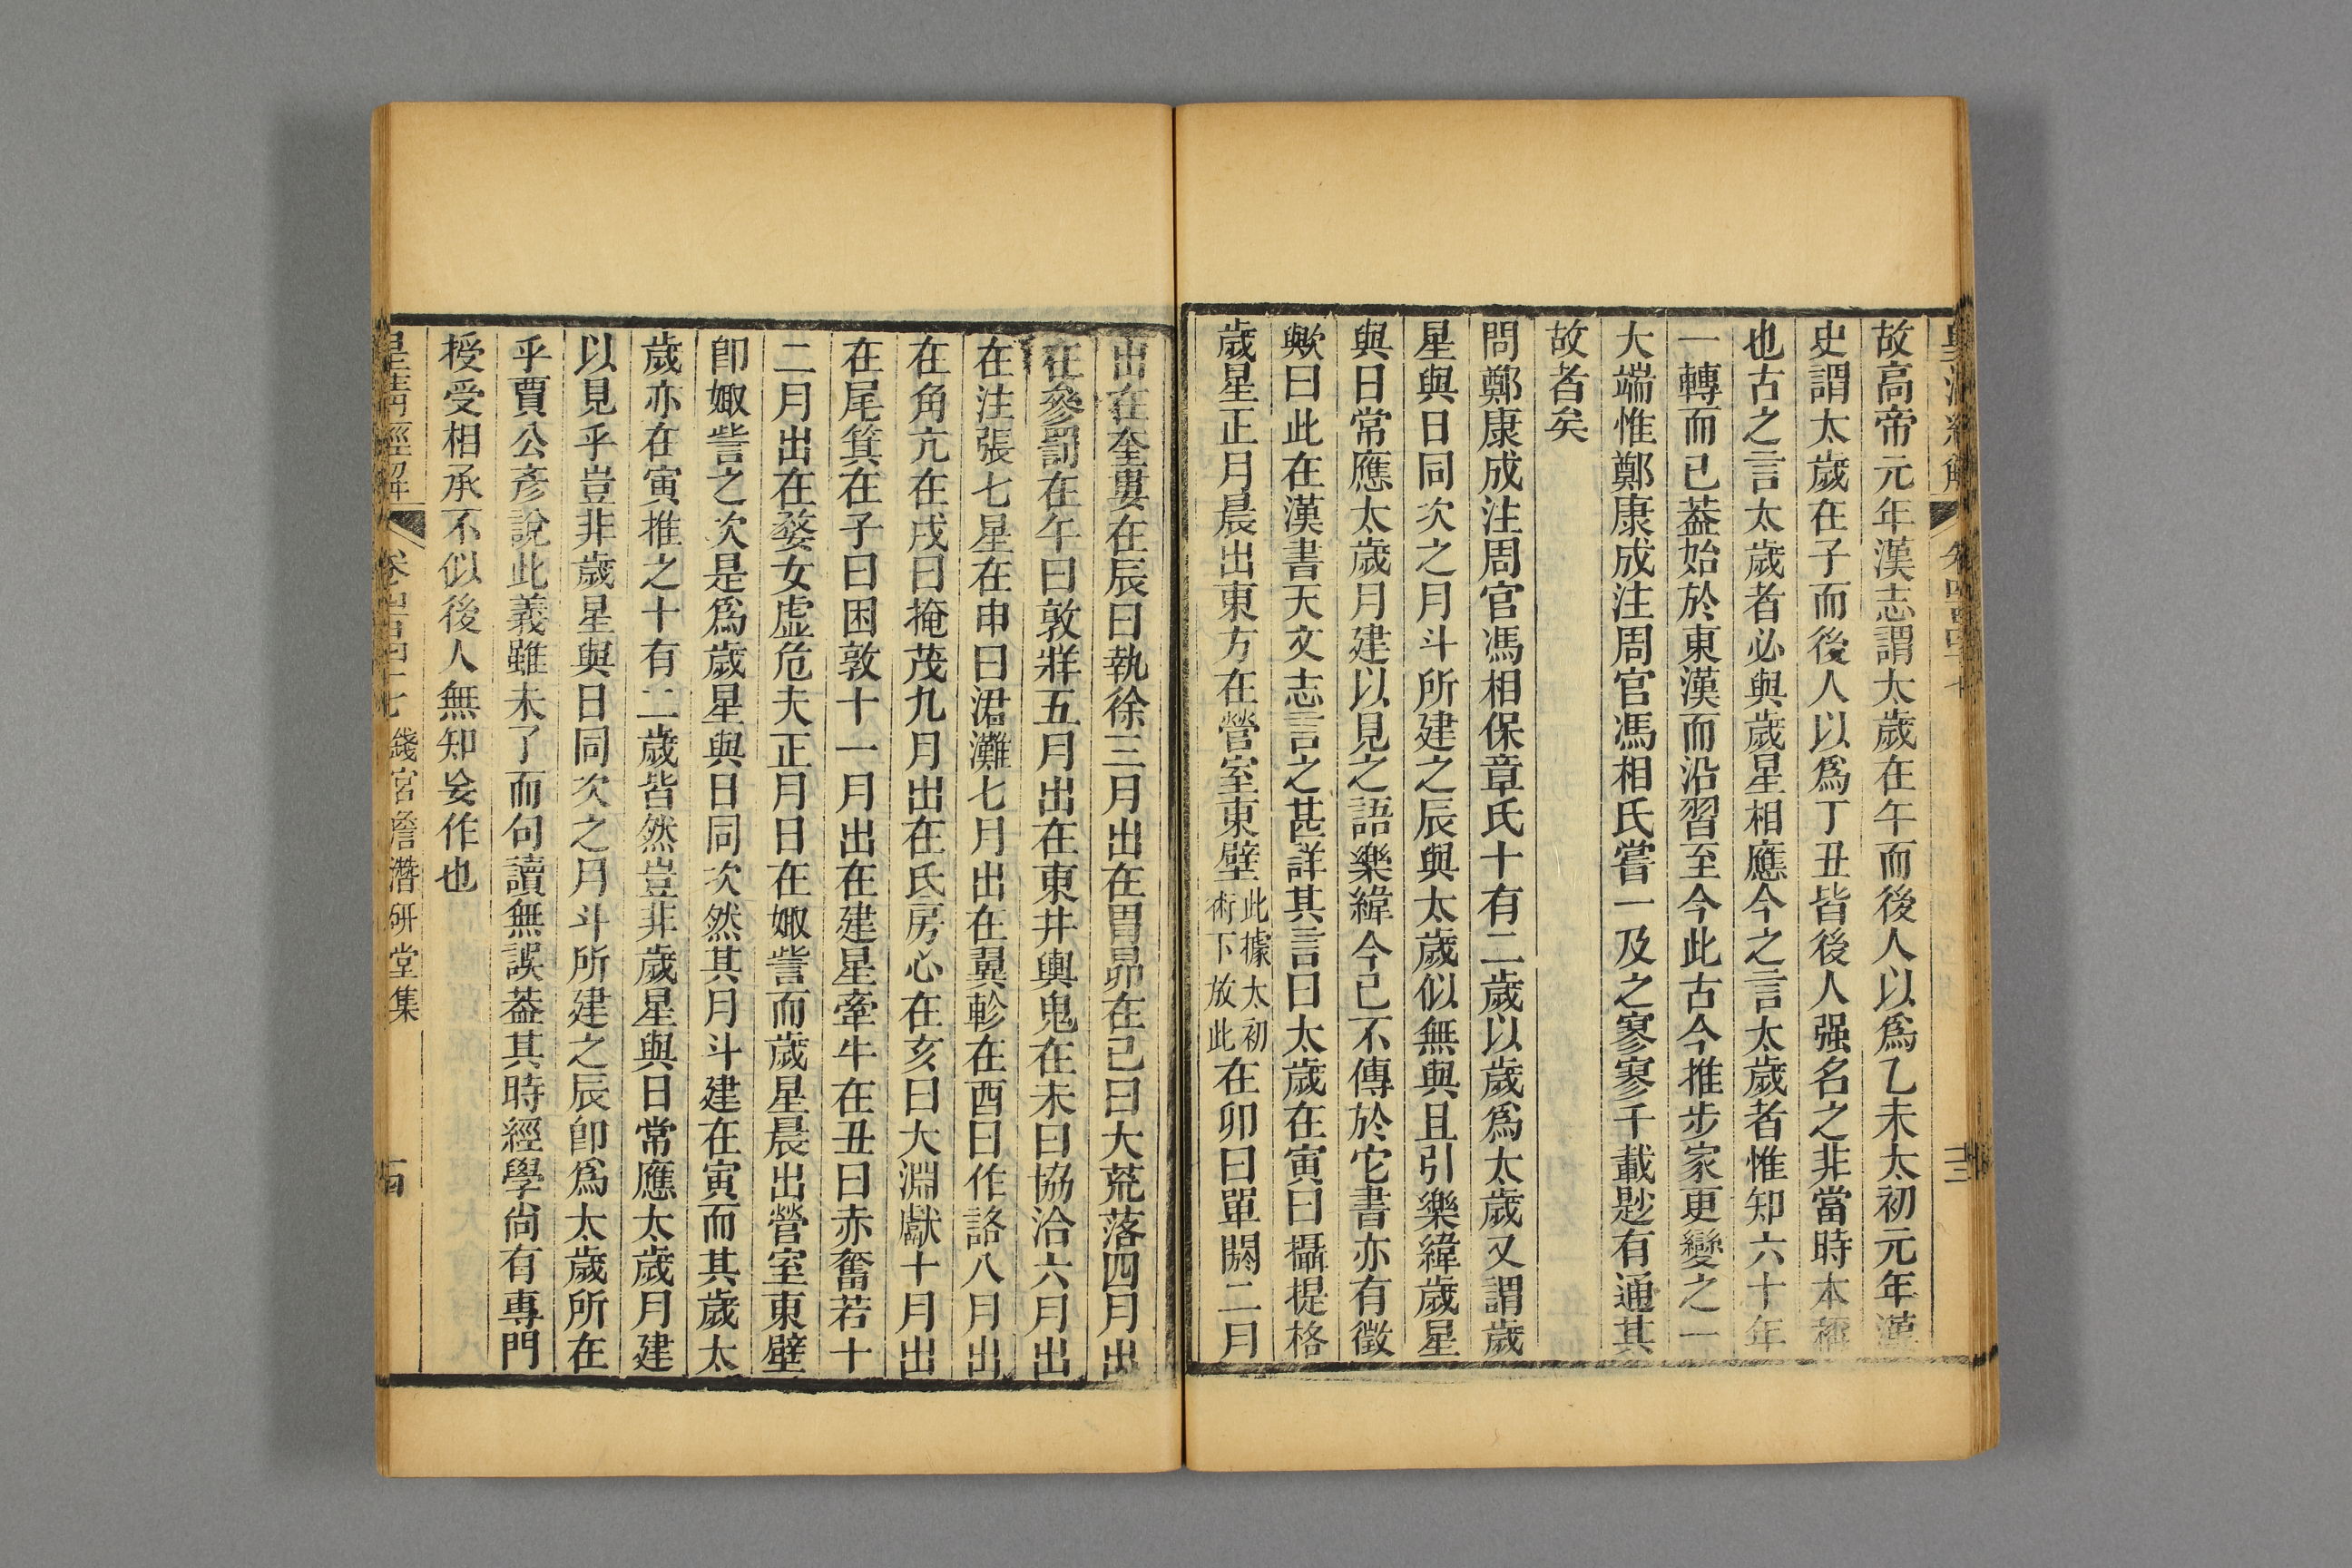 皇清經解 卷四百四十 三
故高帝元年漢志謂太歲在午而後人以爲乙未太初元年漢
史謂太歲在子而後人以爲丁丑皆後人强名之非當時本稱
也古之言太歲者必與歲星相應今之言太歲者惟知六十年
一轉而已葢始於東漢而沿習至今此古今推步家更變之一
大端惟鄭康成注周官馮相氏嘗一及之寥寥千載尟有通其
故者矣
問鄭康成注周官馮相保章氏十有二歲以歲爲太歲又謂歲
星與日同次之月斗所建之辰與太歲似無與且引樂緯歲星
與日常應太歲月建以見之語樂緯今已不傳於它書亦有徵
歟曰此在漢書天文志言之甚詳其言曰太歲在寅曰攝提格
歲星正月晨出東方在營室東壁此據太初術下放此在卯曰單閼二月
出在奎婁在辰曰執徐三月出在胃昴在巳曰大荒落四月出
在參罰在午曰敦牂五月出在東井輿鬼在未曰協洽六月出
在注張七星在申曰涒灘七月出在翼軫在酉曰作詻八月出
在角亢在戌曰掩茂九月出在氐房心在亥曰大淵獻十月出
在尾箕在子曰困敦十一月出在建星牽牛在丑曰赤奮若十
二月出在婺女虛危夫正月日在娵訾而歲星晨出營室東壁
卽娵訾之次是爲歲星與日同次然其月斗建在寅而其歲太
歲亦在寅推之十有二歲皆然豈非歲星與日常應太歲月建
以見乎豈非歲星與日同次之月斗所建之辰卽爲太歲所在
乎賈公彥說此義雖未了而句讀無誤葢其時經學尙有專門
授受相承不似後人無知妄作也
皇清經解 卷四百四十七 錢宮詹潛研堂集 十四